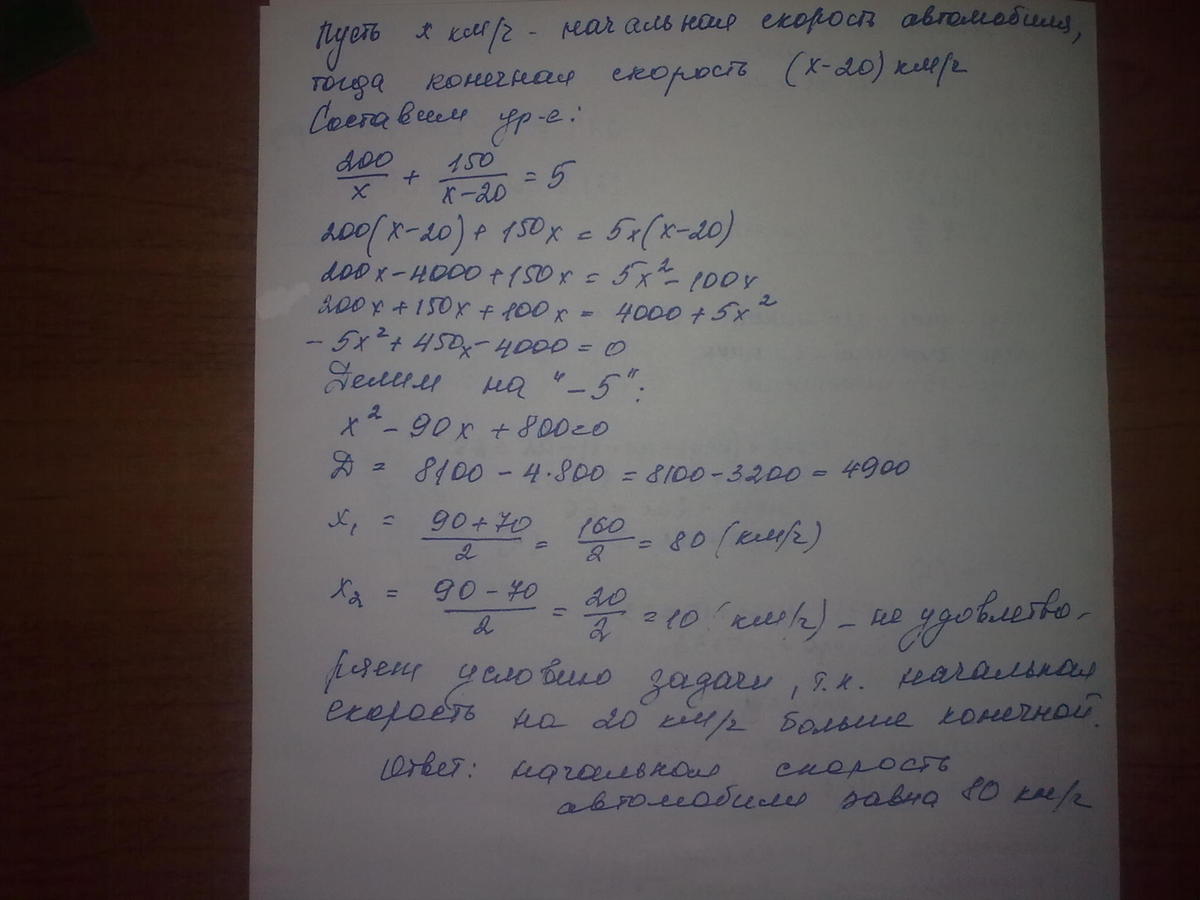 Пусть x км/ч - начальная скорость автомобиля,
тогда конечная скорость (x-20) км/ч
Составим ур-е:
200/x + 150/(x-20) = 5
200(x-20) + 150x = 5x(x-20)
200x - 4000 + 150x = 5x² - 100x
200x + 150x + 100x = 4000 + 5x²
- 5x² + 450x - 4000 = 0
Делим на "-5":
x² - 90x + 800=0
D = 8100 - 4·800 = 8100 - 3200 = 4900
x₁ = (90+70)/2 = 160/2 = 80 (км/ч)
x₂ = (90-70)/2 = 20/2 = 10 (км/ч) - не удовлетво-
ряет условию задачи, т.к. начальная
скорость на 20 км/ч больше конечной.
Ответ: начальная скорость
автомобиля равна 80 км/ч